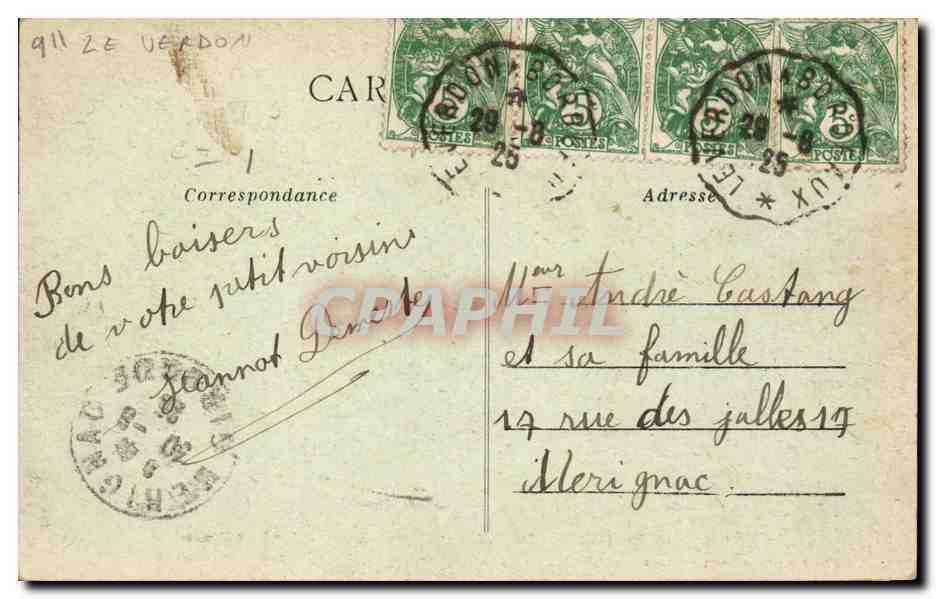 911 LE VERDON
CAR
5 5 5 5
POSTES POSTES POSTES POSTES
LE VERDON * BORD
29 - 8
25
LE VERDON * BORDEAUX *
29 - 8
25
Correspondance
Adresse
Bons baisers
de votre petit voisin
Jeannot
CPAPHIL
Meur Andrè Castang
et sa famille
17 rue des jalles 17
Merignac
MERIGNAC